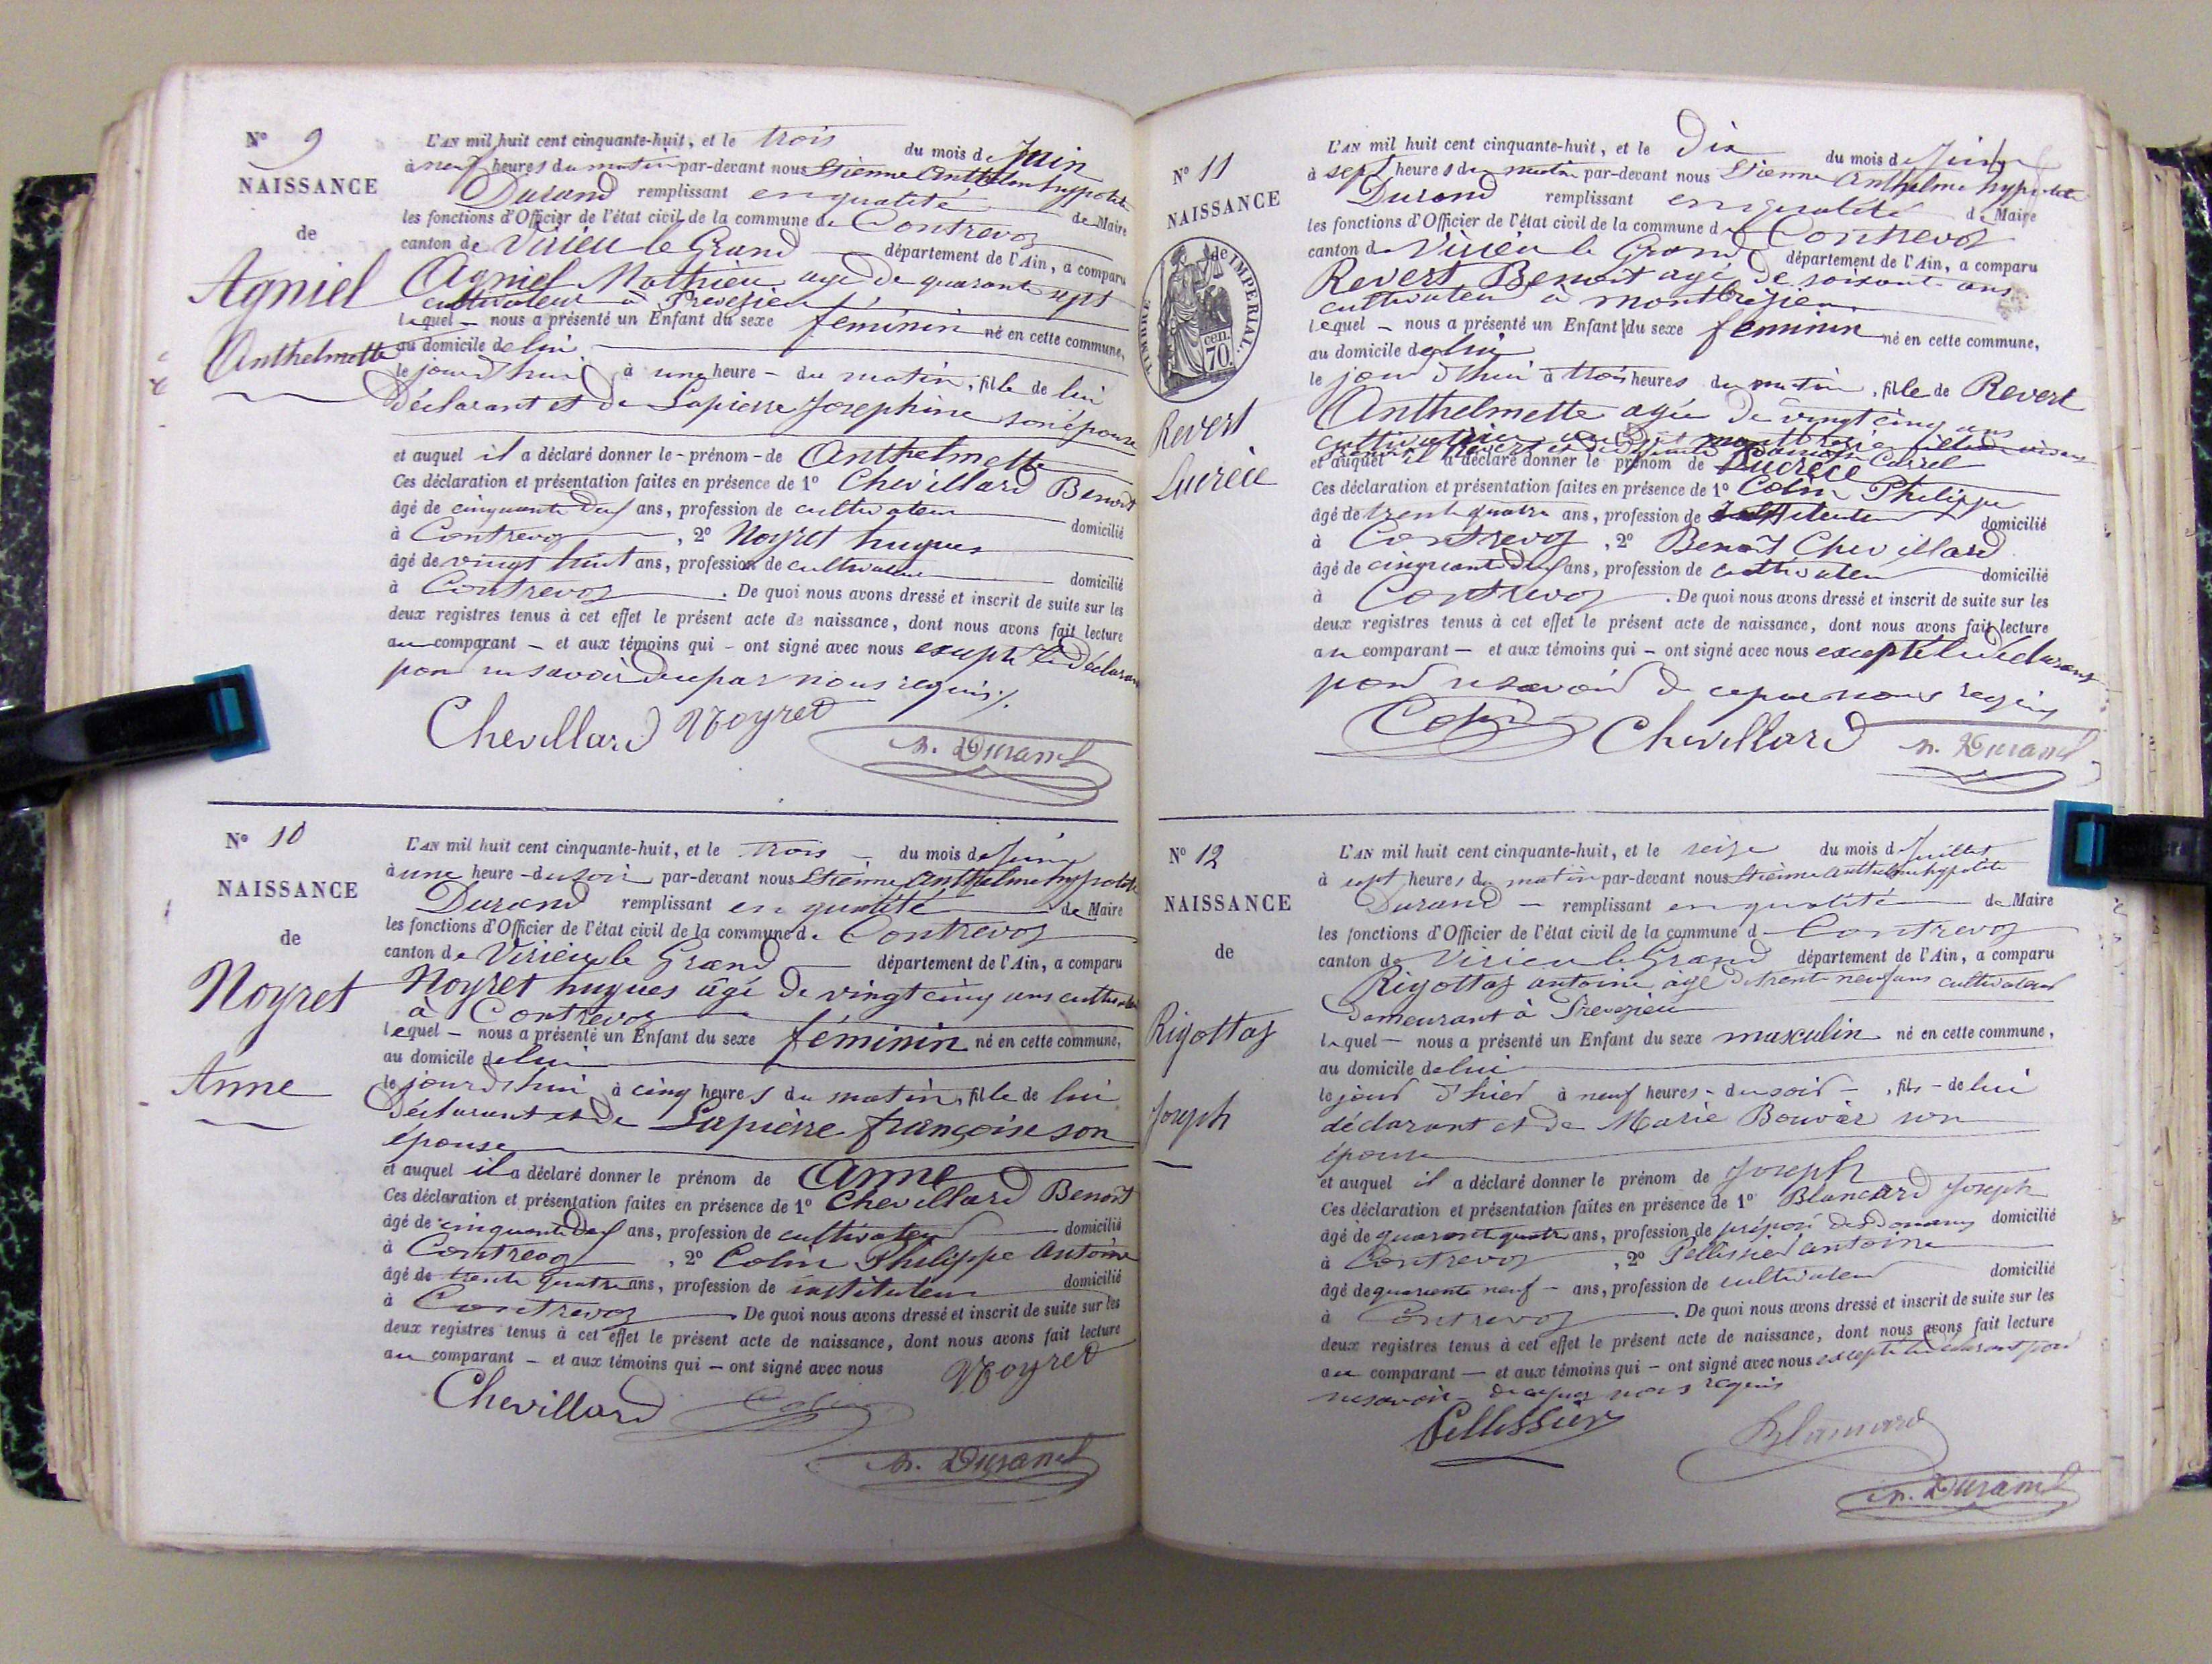 N° 9
NAISSANCE
de
Agniel
Anthelmette
L'AN mil huit cent cinquante-huit, et le trois du mois de Juin
à neuf heures du matin par-devant nous Etienne Anthelme hyppolite
Durand remplissant en qualité de Maire
les fonctions d'Officier de l'état civil de la commune de Contrevoz
canton de Virieu le Grand département de l'Ain, a comparu
Agniel Mathieu agé de quarante sept
cultivateur à Prevezieu
lequel nous a présenté un Enfant du sexe féminin né en cette commune,
au domicile de lui
le jourd'hui à une heure du matin, fille de lui
Déclarant et de Lapierre Josephine son épouse
et auquel il a déclaré donner le prénom de Anthelmette
Ces déclaration et présentation faites en présence de 1° Chevillard Benoit
âgé de cinquante deux ans, profession de cultivateur domicilié
à Contrevoz, 2° Noyret hugues
âgé de vingt huit ans, profession de cultivateur domicilié
à Contrevoz. De quoi nous avons dressé et inscrit de suite sur les
deux registres tenus à cet effet le présent acte de naissance, dont nous avons fait lecture
au comparant et aux témoins qui ont signé avec nous excepté le déclarant
pour ne savoir de ce par nous requis
Chevillard Noyret
h. Durand
N° 10
NAISSANCE
de
Noyret
Anne
L'AN mil huit cent cinquante-huit, et le trois du mois de Juin
à une heure du soir par-devant nous Etienne Anthelme hyppolite
Durand remplissant en qualité de Maire
les fonctions d'Officier de l'état civil de la commune de Contrevoz
canton de Virieu le Grand département de l'Ain, a comparu
Noyret hugues âgé de vingt cinq ans cultivateur
à Contrevoz
lequel nous a présenté un Enfant du sexe féminin né en cette commune,
au domicile de lui
le jourd'hui à cinq heures du matin, fille de lui
Déclarant et de Lapierre françoise son
épouse
et auquel il a déclaré donner le prénom de Anne
Ces déclaration et présentation faites en présence de 1° Chevillard Benoit
âgé de cinquante deux ans, profession de cultivateur domicilié
à Contrevoz, 2° Colin Philippe Antoine
âgé de trente quatre ans, profession de instituteur domicilié
à Contrevoz De quoi nous avons dressé et inscrit de suite sur les
deux registres tenus à cet effet le présent acte de naissance, dont nous avons fait lecture
au comparant et aux témoins qui ont signé avec nous Noyret
Chevillard Colin
h. Durand
N° 11
NAISSANCE
TIMBRE IMPERIAL.
70 cen.
de
Revert
Lucrèce
L'AN mil huit cent cinquante-huit, et le Dix du mois de Juin
à sept heures du matin par-devant nous Etienne Anthelme hyppolite
Durand remplissant en qualité de Maire
les fonctions d'Officier de l'état civil de la commune de Contrevoz
canton de Virieu le Grand département de l'Ain, a comparu
Revert Benoit agé de soixante ans
cultivateur à Montbrezieu
lequel nous a présenté un Enfant du sexe féminin né en cette commune,
au domicile de lui
le jourd'hui à trois heures du matin, fille de Revert
Anthelmette agée de vingt cinq ans
cultivatrice
et auquel il a déclaré donner le prénom de Lucrèce
Ces déclaration et présentation faites en présence de 1° Colin Philippe
âgé de trente quatre ans, profession de Instituteur domicilié
à Contrevoz, 2° Benoit Chevillard
âgé de cinquante deux ans, profession de cultivateur domicilié
à Contrevoz. De quoi nous avons dressé et inscrit de suite sur les
deux registres tenus à cet effet le présent acte de naissance, dont nous avons fait lecture
au comparant et aux témoins qui ont signé avec nous excepté le déclarant
pour ne savoir de ce par nous requis
Colin Chevillard h. Durand
N° 12
NAISSANCE
de
Rigottaz
Joseph
L'AN mil huit cent cinquante-huit, et le seize du mois de Juillet
à sept heures du matin par-devant nous Etienne Anthelme hyppolite
Durand remplissant en qualité de Maire
les fonctions d'Officier de l'état civil de la commune d Contrevoz
canton de Virieu le Grand département de l'Ain, a comparu
Rigottaz antoine agé de trente neuf ans cultivateur
demeurant à Prevezieu
lequel nous a présenté un Enfant du sexe masculin né en cette commune,
au domicile de lui
le jour d'hier à neuf heures du soir, fils de lui
déclarant et de Marie Bouvier son
épouse
et auquel il a déclaré donner le prénom de Joseph
Ces déclaration et présentation faites en présence de 1° Blancard Joseph
âgé de quarante quatre ans, profession de préposé des Douanes domicilié
à Contrevoz, 2° Pellissier antoine
âgé de quarante neuf ans, profession de cultivateur domicilié
à Contrevoz. De quoi nous avons dressé et inscrit de suite sur les
deux registres tenus à cet effet le présent acte de naissance, dont nous avons fait lecture
au comparant et aux témoins qui ont signé avec nous excepté le déclarant pour
ne savoir de ce par nous requis
Pellissier Blancard
h. Durand